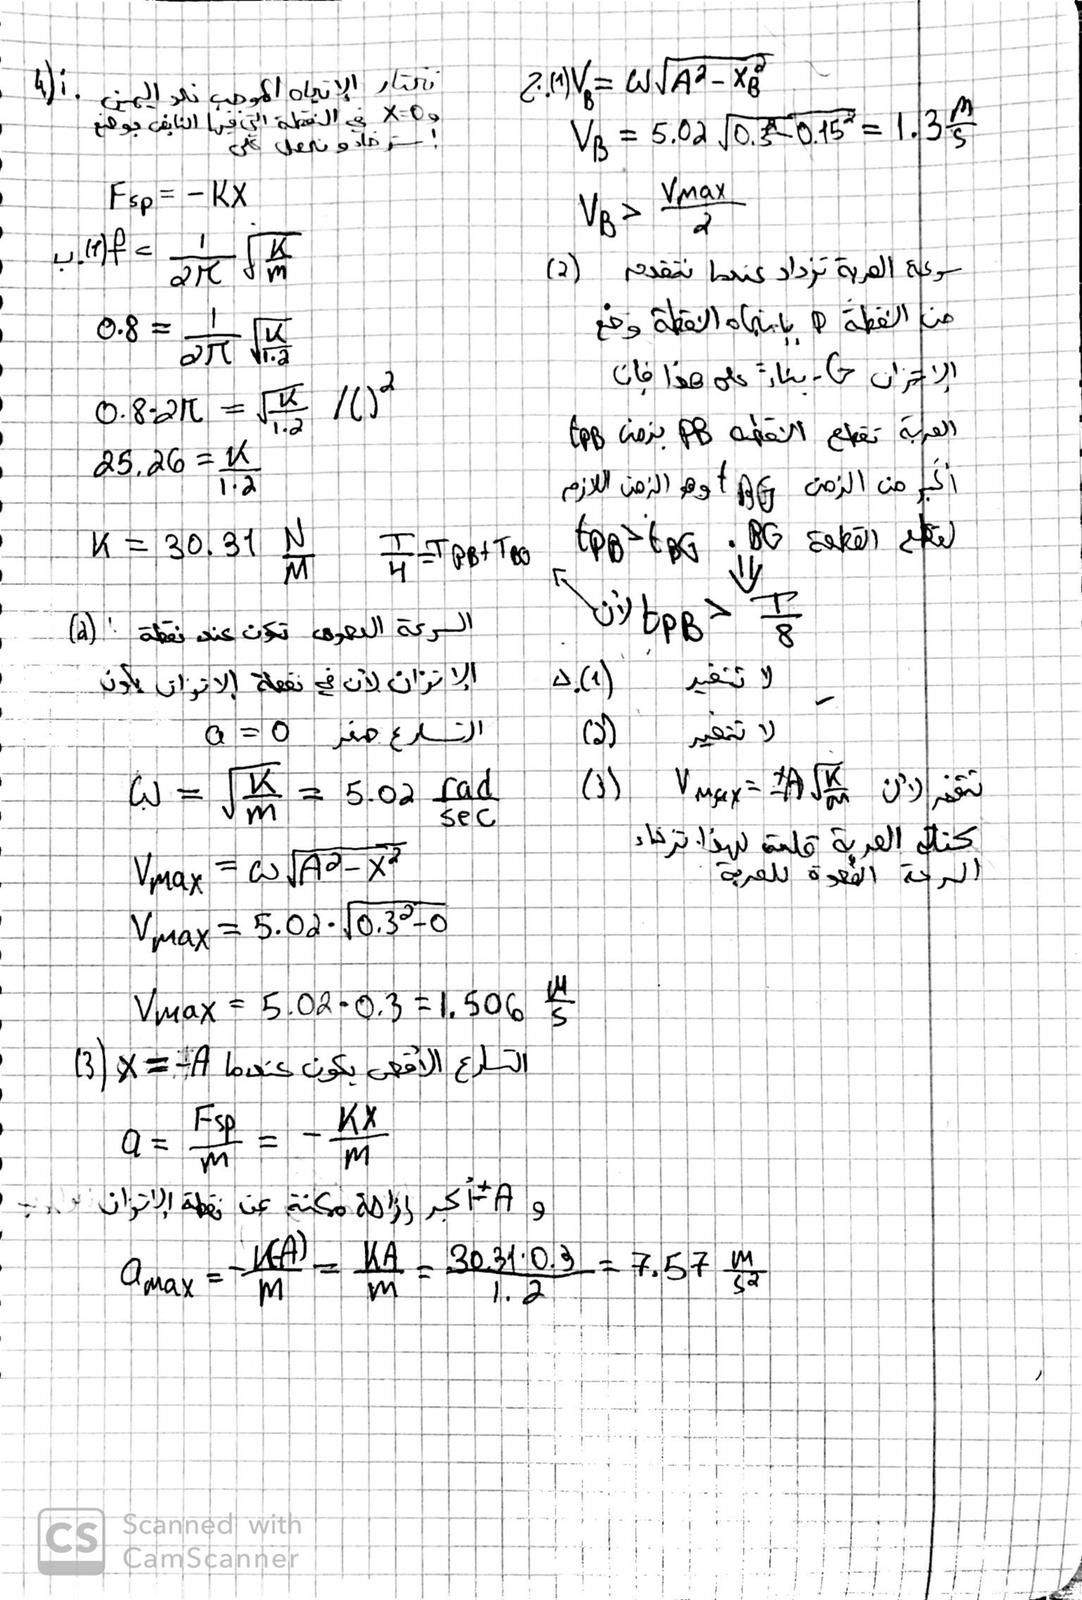 4) أ. نختار الإتجاه الموجب نحو اليمين
و x=0 في النقطة التي فيها النابض بوضع
إسترخاء و نحصل على
Fsp = -KX
ب. (1) f = 1/2π √(K/m)
0.8 = 1/2π √(K/1.2)
0.8·2π = √(K/1.2) /()²
25.26 = K/1.2
K = 30.31 N/M
(2) السرعة القصوى تكون عند نقطة
الإتزان لأن في نقطة الإتزان يكون
التسارع صفر a = 0
ω = √(K/m) = 5.02 rad/sec
Vmax = ω√(A²-X²)
Vmax = 5.02·√(0.3²-0)
Vmax = 5.02·0.3 = 1.506 M/s
(3) التسارع الأقصى يكون عندما x = -A
a = Fsp/m = -KX/M
و ±A أكبر إزاحة ممكنة عن نقطة الإتزان
amax = -K(-A)/m = KA/m = 30.31·0.3/1.2 = 7.57 m/s²
ج. (1) VB = ω√(A²-XB²)
VB = 5.02√(0.3²-0.15²) = 1.3 M/s
VB > Vmax/2
(2) سرعة العربة تزداد عندما تتقدم
من النقطة P بإتجاه النقطة وضع
الإتزان G. بناءً على هذا فإن
العربة تقطع القطعة PB بزمن tPB
أكبر من الزمن tBG وهو الزمن اللازم
لقطع القطعة BG. tPB > tBG
⇓
tPB > T/8 لأن
T/4 = TPB + TBG
د. (1) لا تتغير
(2) لا تتغير
(3) Vmax = ±A√(K/m) تتغير لأن
كتلة العربة قلت لهذا تزداد
السرعة القصوى للعربة
CS Scanned with
CamScanner